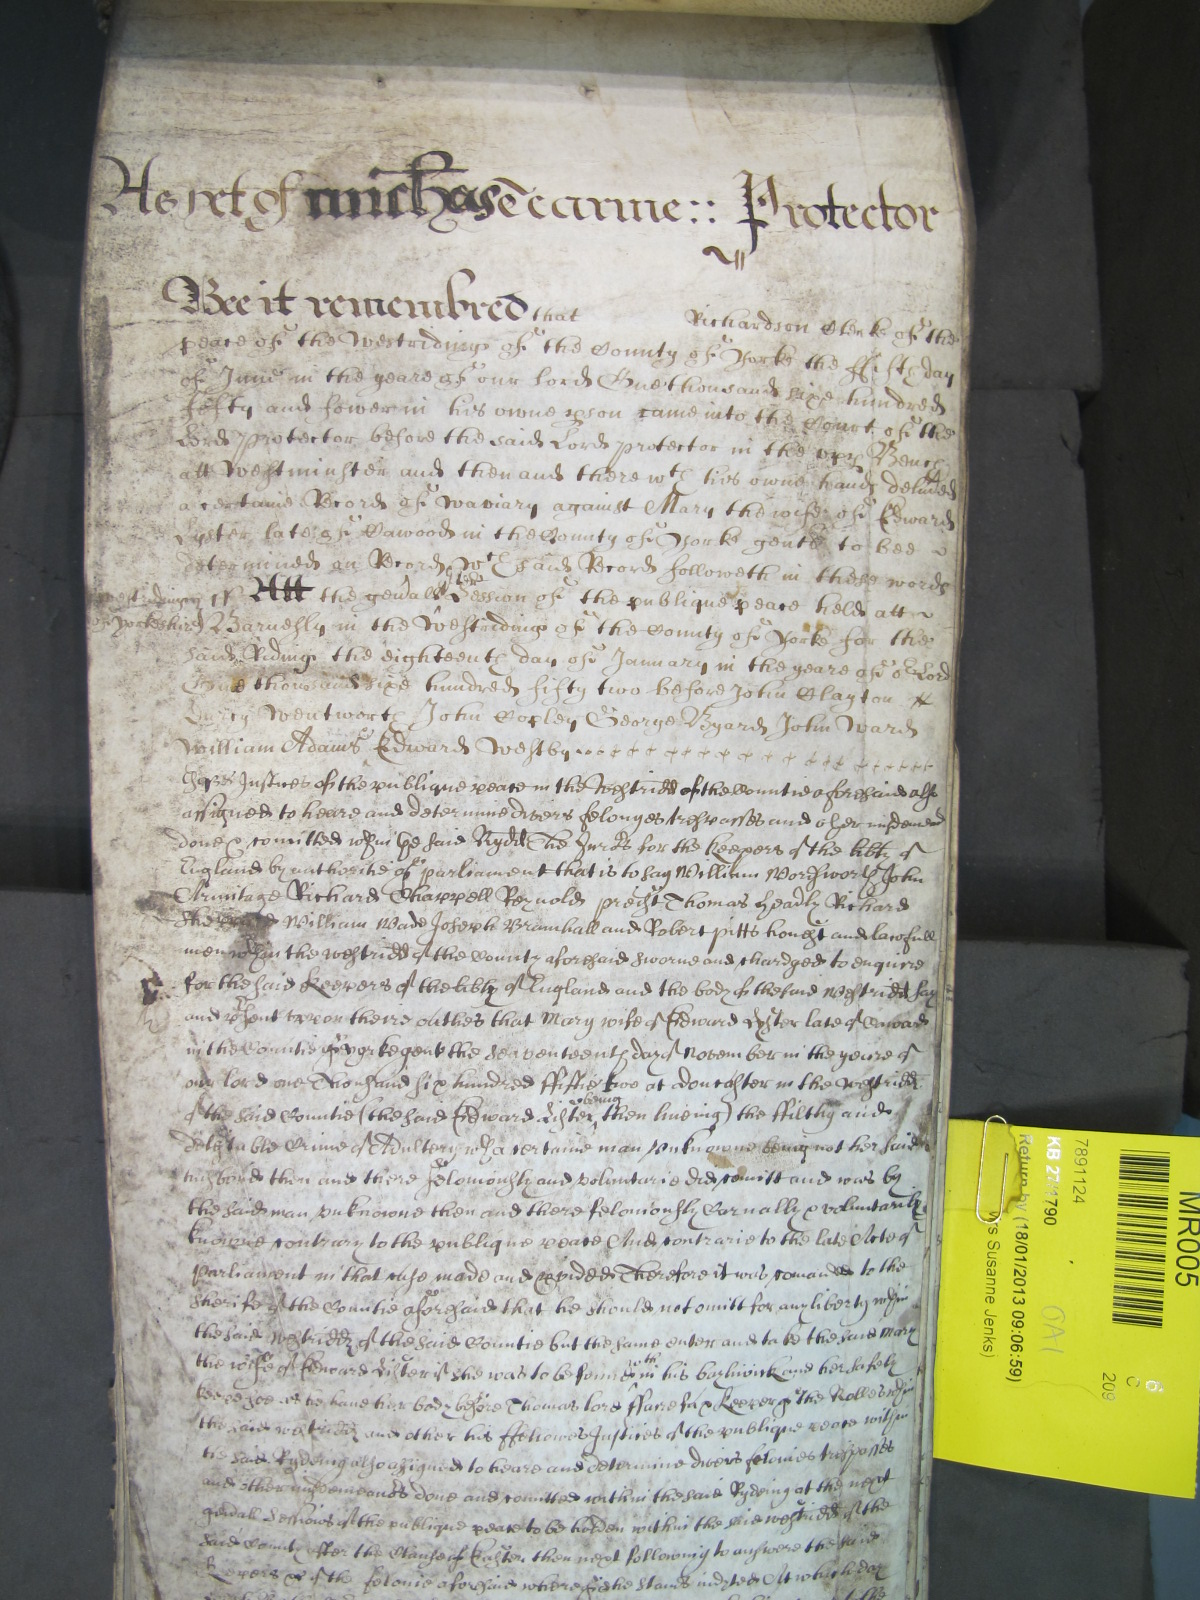 As yet of michas Terme :: Protector
Bee it remembred that Richardson Clerke of the
peace of the Westridinge of the County of Yorke the ffifth day
of June in the yeare of our Lord One thousand sixe hundred
fifty and fower in his owne pson came into the Court of the
Lord Protector before the said Lord Protector in the vpp Bench
att Westminster and then and there wth his owne hands deliued
a certaine Record of waviary against Mary the wife of Edward
Lyster late of Cawood in the County of Yorke gent to bee
determined on Record wch said Record followeth in these words
Westridinge ss Att the genall Session of the publique peace held att
of Yorkeshire Barnesly in the Westridinge of the County of Yorke for the
said Riding the eighteenth day of January in the yeare of or Lord
One thousand sixe hundred fifty two before John Clayton
Darcy Wentworth John Copley George Byard John Ward
William Adams Edward Westby
Esqrs Justices of the publique peace in the Westridd of the Countie aforesaid also
assigned to heare and determine divers felonyes trespasses and other misdemend
done & comitted wthin the said Rydd The Jurors for the keepers of the libty of
England by authoritie of parliament that is to say William Wordsworth John
Armitage Richard Chappell Reynold Thomas Headly Richard
William Wade Joseph Bramhall and Robert Pitts honest and lawfull
men wthin the westridd of the County aforesaid sworne and chardged to enquire
for the said Keepers of the libty of England and the body of the said Westridd say
and psent vpon theire oathes that Mary wife of Edward Lyster late of Cawood
in the Countie of Yorke gent the seaventeenth day of November in the yeare of
our lord one Thousand six hundred ffiftie two at doncaster in the Westridd
of the said Countie (the said Edward Lister being then liueing) the ffilthy and
detestable Crime of Adultery wth a certaine man vnknowne being not her said
husband then and there feloniously and voluntarie did comitt and was by
the said man vnknowne then and there feloniously Carnally & voluntarily
knowne contrary to the publique peace And contrarie to the late Acte of
parliament in that case made and pvided Therefore it was comanded to the
Sherife of the Countie aforesaid that he should not omitt for any liberty wthin
the said Westridd of the said Countie but the same enter and take the said Mary
the wife of Edward Lister if she was to be found in his bayliwick and her safely
keepe soe as he haue her body before Thomas lord ffairefax Keeper of the Rolles wthin
the said westridd and other his ffellowes Justices of the publique peace within
the said Rydeing also assigned to heare and determine divers felonies trespasses
and other misdemeands done and comitted within the said Rydeing at the next
genall Sessions of the publique peace to be holden within the said westridd of the
said County after the Clause of Easter then next following to answere the said
Keepers &c of the felonie aforesaid whereof she stands indyted At which day
MR005
7891124
6
C
209
KB 27/1790
CA 1
Return by (18/01/2013 09:06:59)
Ms Susanne Jenks)